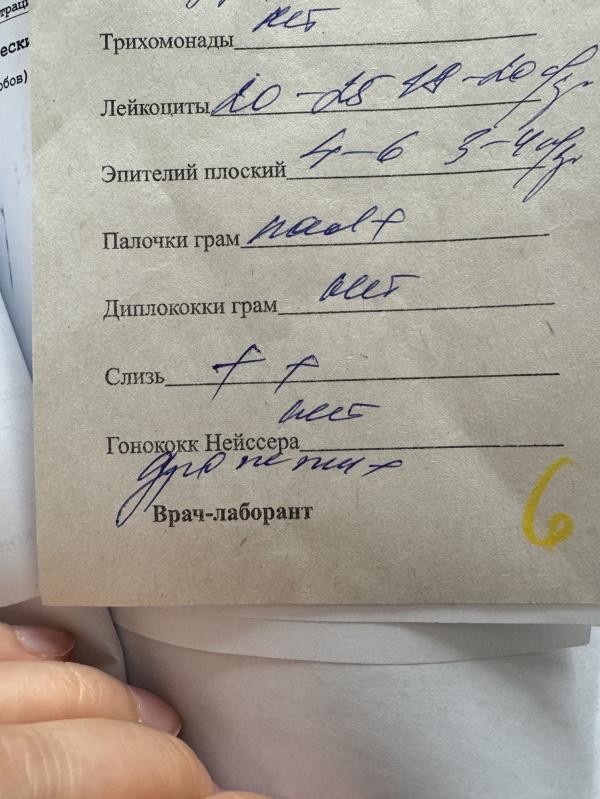 трац
ески
обов)
Трихомонады нет
Лейкоциты 20-25 18-20
Эпителий плоский 4-6 3-4
Палочки грам +
Диплококки грам нет
Слизь + +
Гонококк Нейссера нет
дрожжи +
Врач-лаборант
6